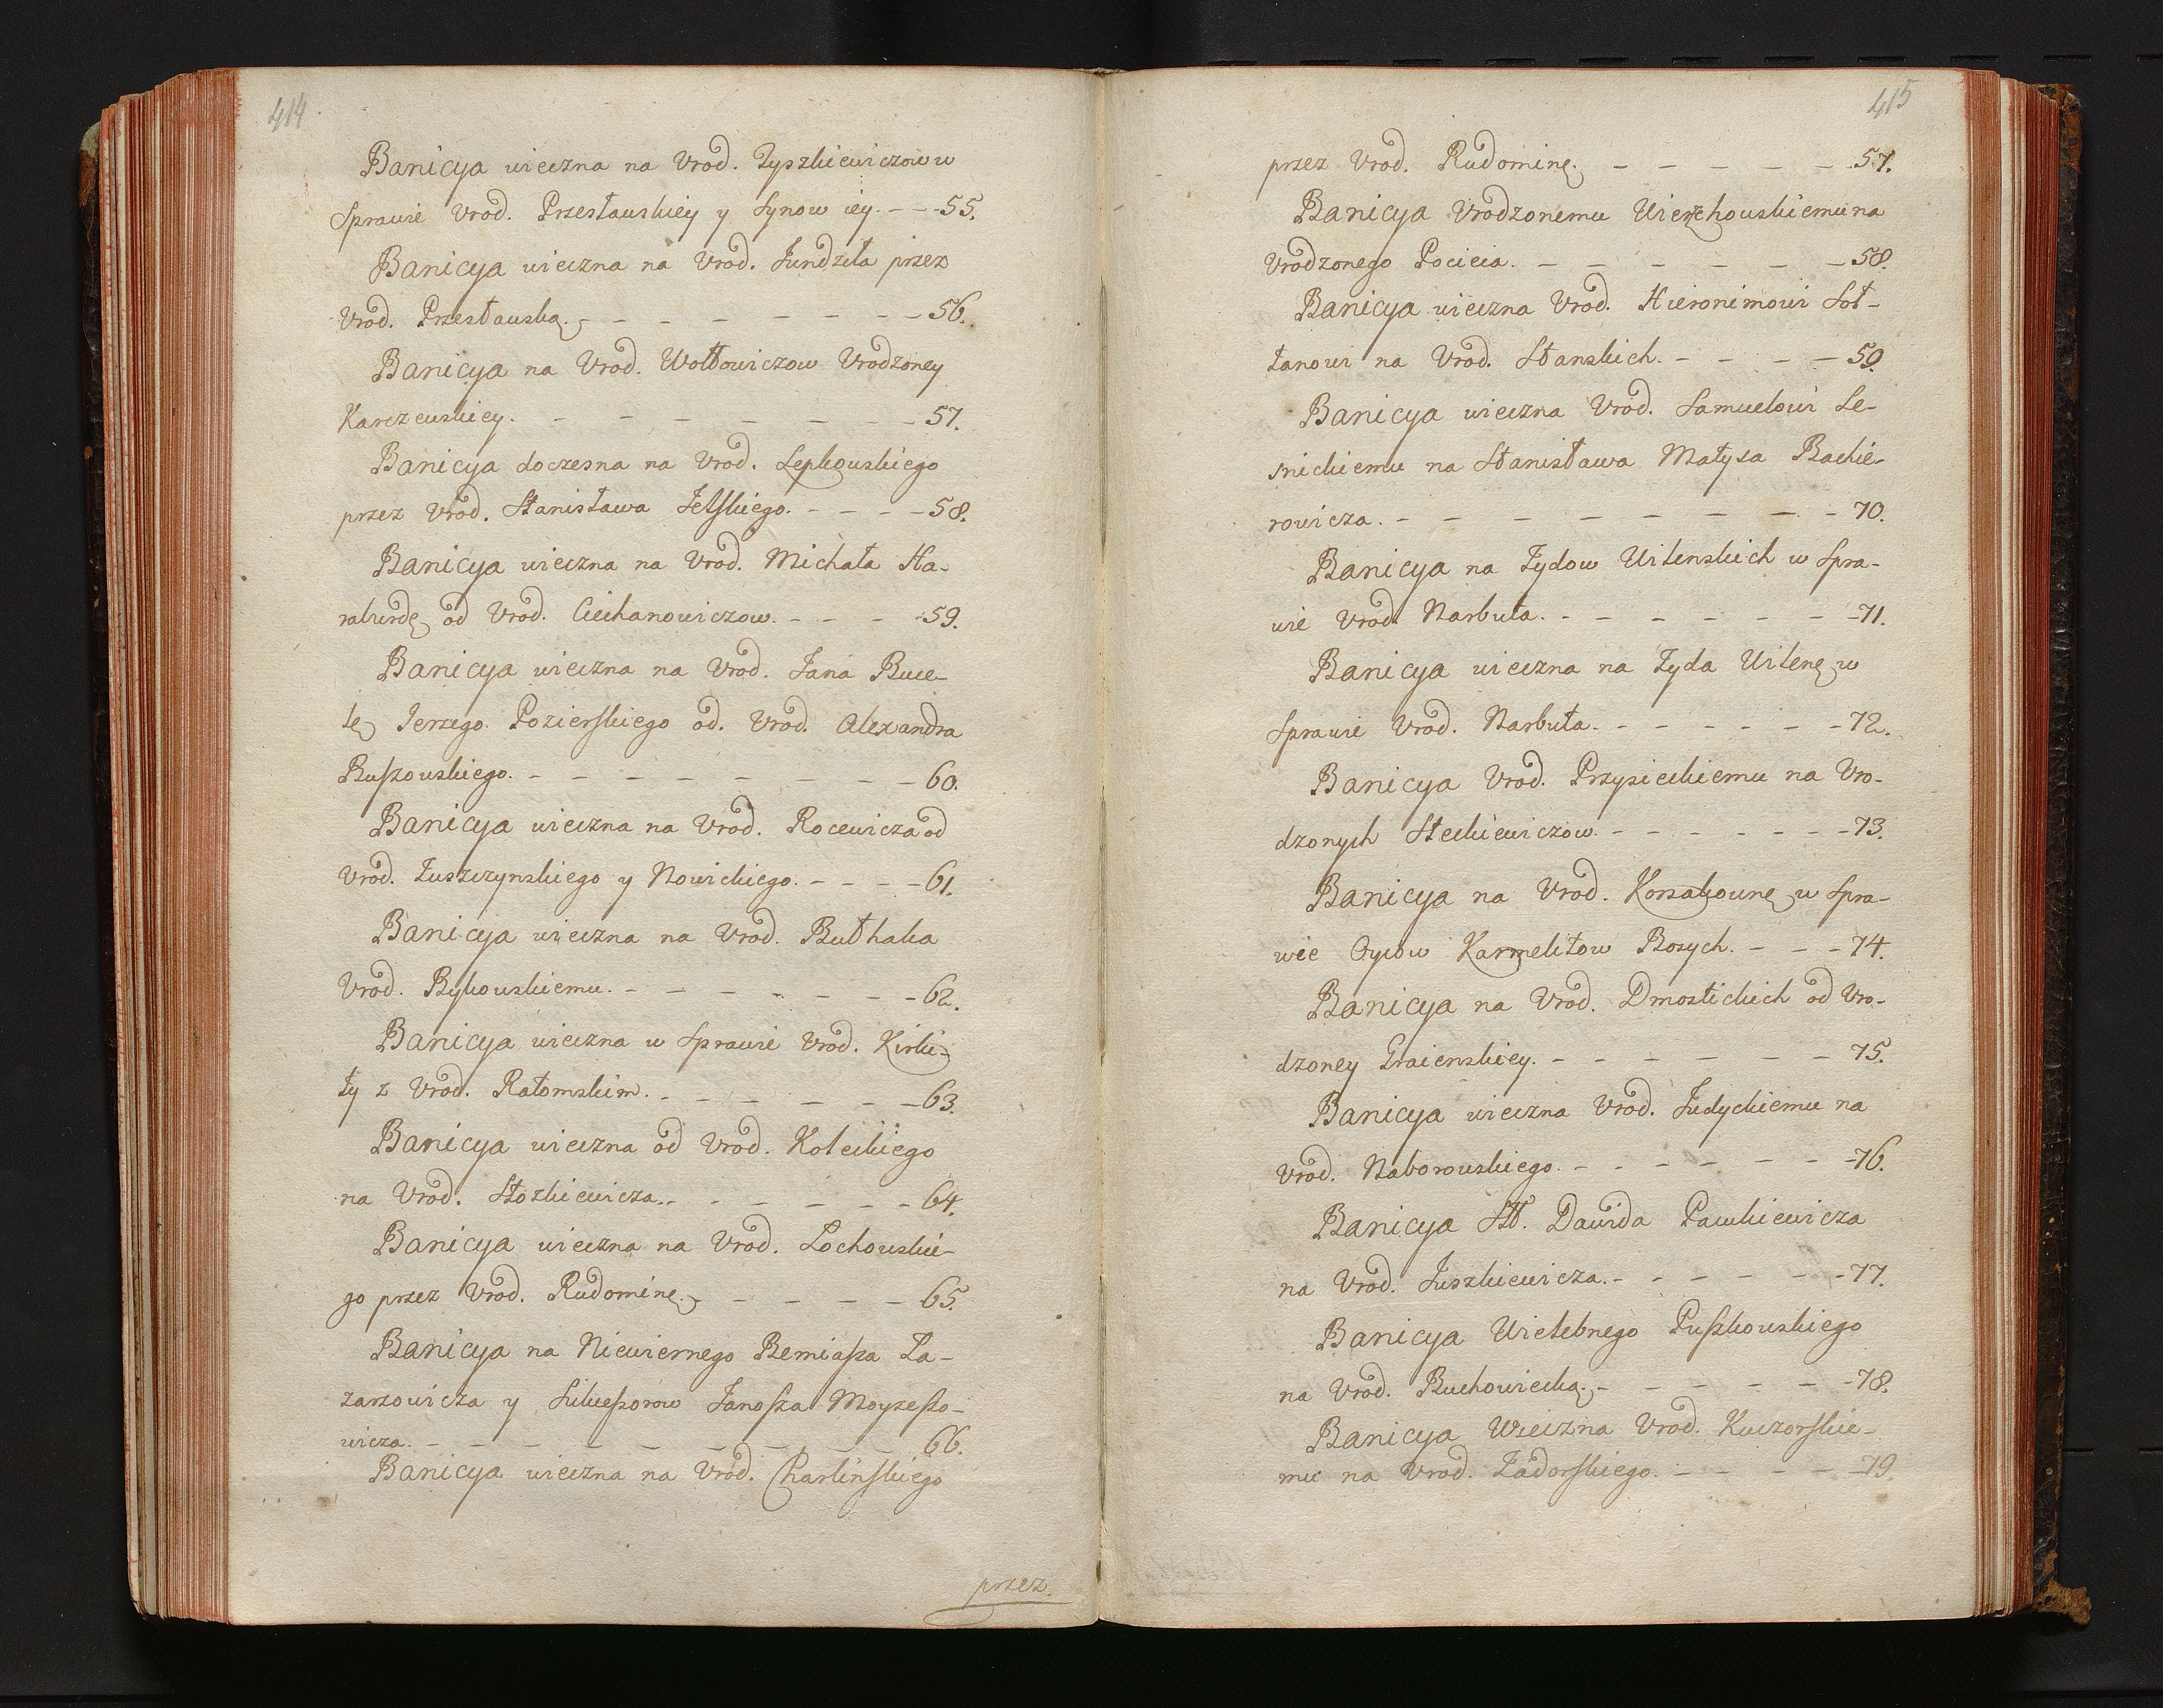 414
Banicya wieczna na Vrod. Tyszkiewiczow w
Sprawie Vrod. Przesławskiey y Synow iey. - - - 55.
Banicya wieczna na Vrod. Jundzeła przez
Vrod. Przesławską. - - - - - - - - 56.
Banicya na Vrod. Wołłowiczow Vrodzoney
Karczewskiey. - - - - - - - 57.
Banicya doczesna na Vrod. Lepkowskiego
przez Vrod. Stanisława Jelskiego. - - - - 58.
Banicya wieczna na Vrod. Michała Ha-
raburdę od Vrod. Ciechanowiczow. - - - - 59.
Banicya wieczna na Vrod. Jana Buce-
lę Jerzego Pozierskiego od. Vrod. Alexandra
Ruszowskiego. - - - - - - - - 60.
Banicya wieczna na Vrod. Rocewicza od
Vrod. Łuszczynskiego y Nowickiego. - - - - 61.
Banicya wieczna na Vrod. Buthaka
Vrod. Bykowskiemu. - - - - - - - 62.
Banicya wieczna w Sprawie Vrod. Kirki-
ły z Vrod. Ratomskim. - - - - - - 63.
Banicya wieczna od Vrod. Koteckiego
na Vrod. Stozkiewicza. - - - - - - 64.
Banicya wieczna na Vrod. Lochowskie-
go przez Vrod. Rudominę. - - - - - 65.
Banicya na Niewiernego Bemiasza Ła-
zarzowicza y Sukcessorow Janosza Moyzeszo-
wicza. - - - - - - - - - 66.
Banicya wieczna na Vrod. Charlinskiego
przez.
415
przez Vrod. Rudominę. - - - - - - 57.
Banicya Vrodzonemu Wierzchowskiemu na
Vrodzonego Pocieia. - - - - - - 58.
Banicya wieczna Vrod. Hieronimowi Soł-
tanowi na Vrod. Stanskich. - - - - 59.
Banicya wieczna Vrod. Samuelowi Le-
snickiemu na Stanisława Matysa Bachie-
rowicza. - - - - - - - - 70.
Banicya na Zydow Wilenskich w Spra-
wie Vrod. Narbuta. - - - - - - - 71.
Banicya wieczna na Zyda Wilenę w
Sprawie Vrod. Narbuta. - - - - - - 72.
Banicya Vrod. Przysieckiemu na Vro-
dzonych Steckiewiczow. - - - - - - 73.
Banicya na Vrod. Korsakownę w Spra-
wie Oycow Karmelitow Bosych. - - - 74.
Banicya na Vrod. Dmostickich od Vro-
dzoney Graienskiey. - - - - - - 75.
Banicya wieczna Vrod. Judyckiemu na
Vrod. Naborowskiego. - - - - - - 76.
Banicya Dawida Pawkiewicza
na Vrod. Juszkiewicza. - - - - - - 77.
Banicya Wielebnego Puszkowskiego
na Vrod. Buchowiecką. - - - - - - 78.
Banicya Wieczna Vrod. Kuczorskie-
mu na Vrod. Zadorskiego. - - - - 79.